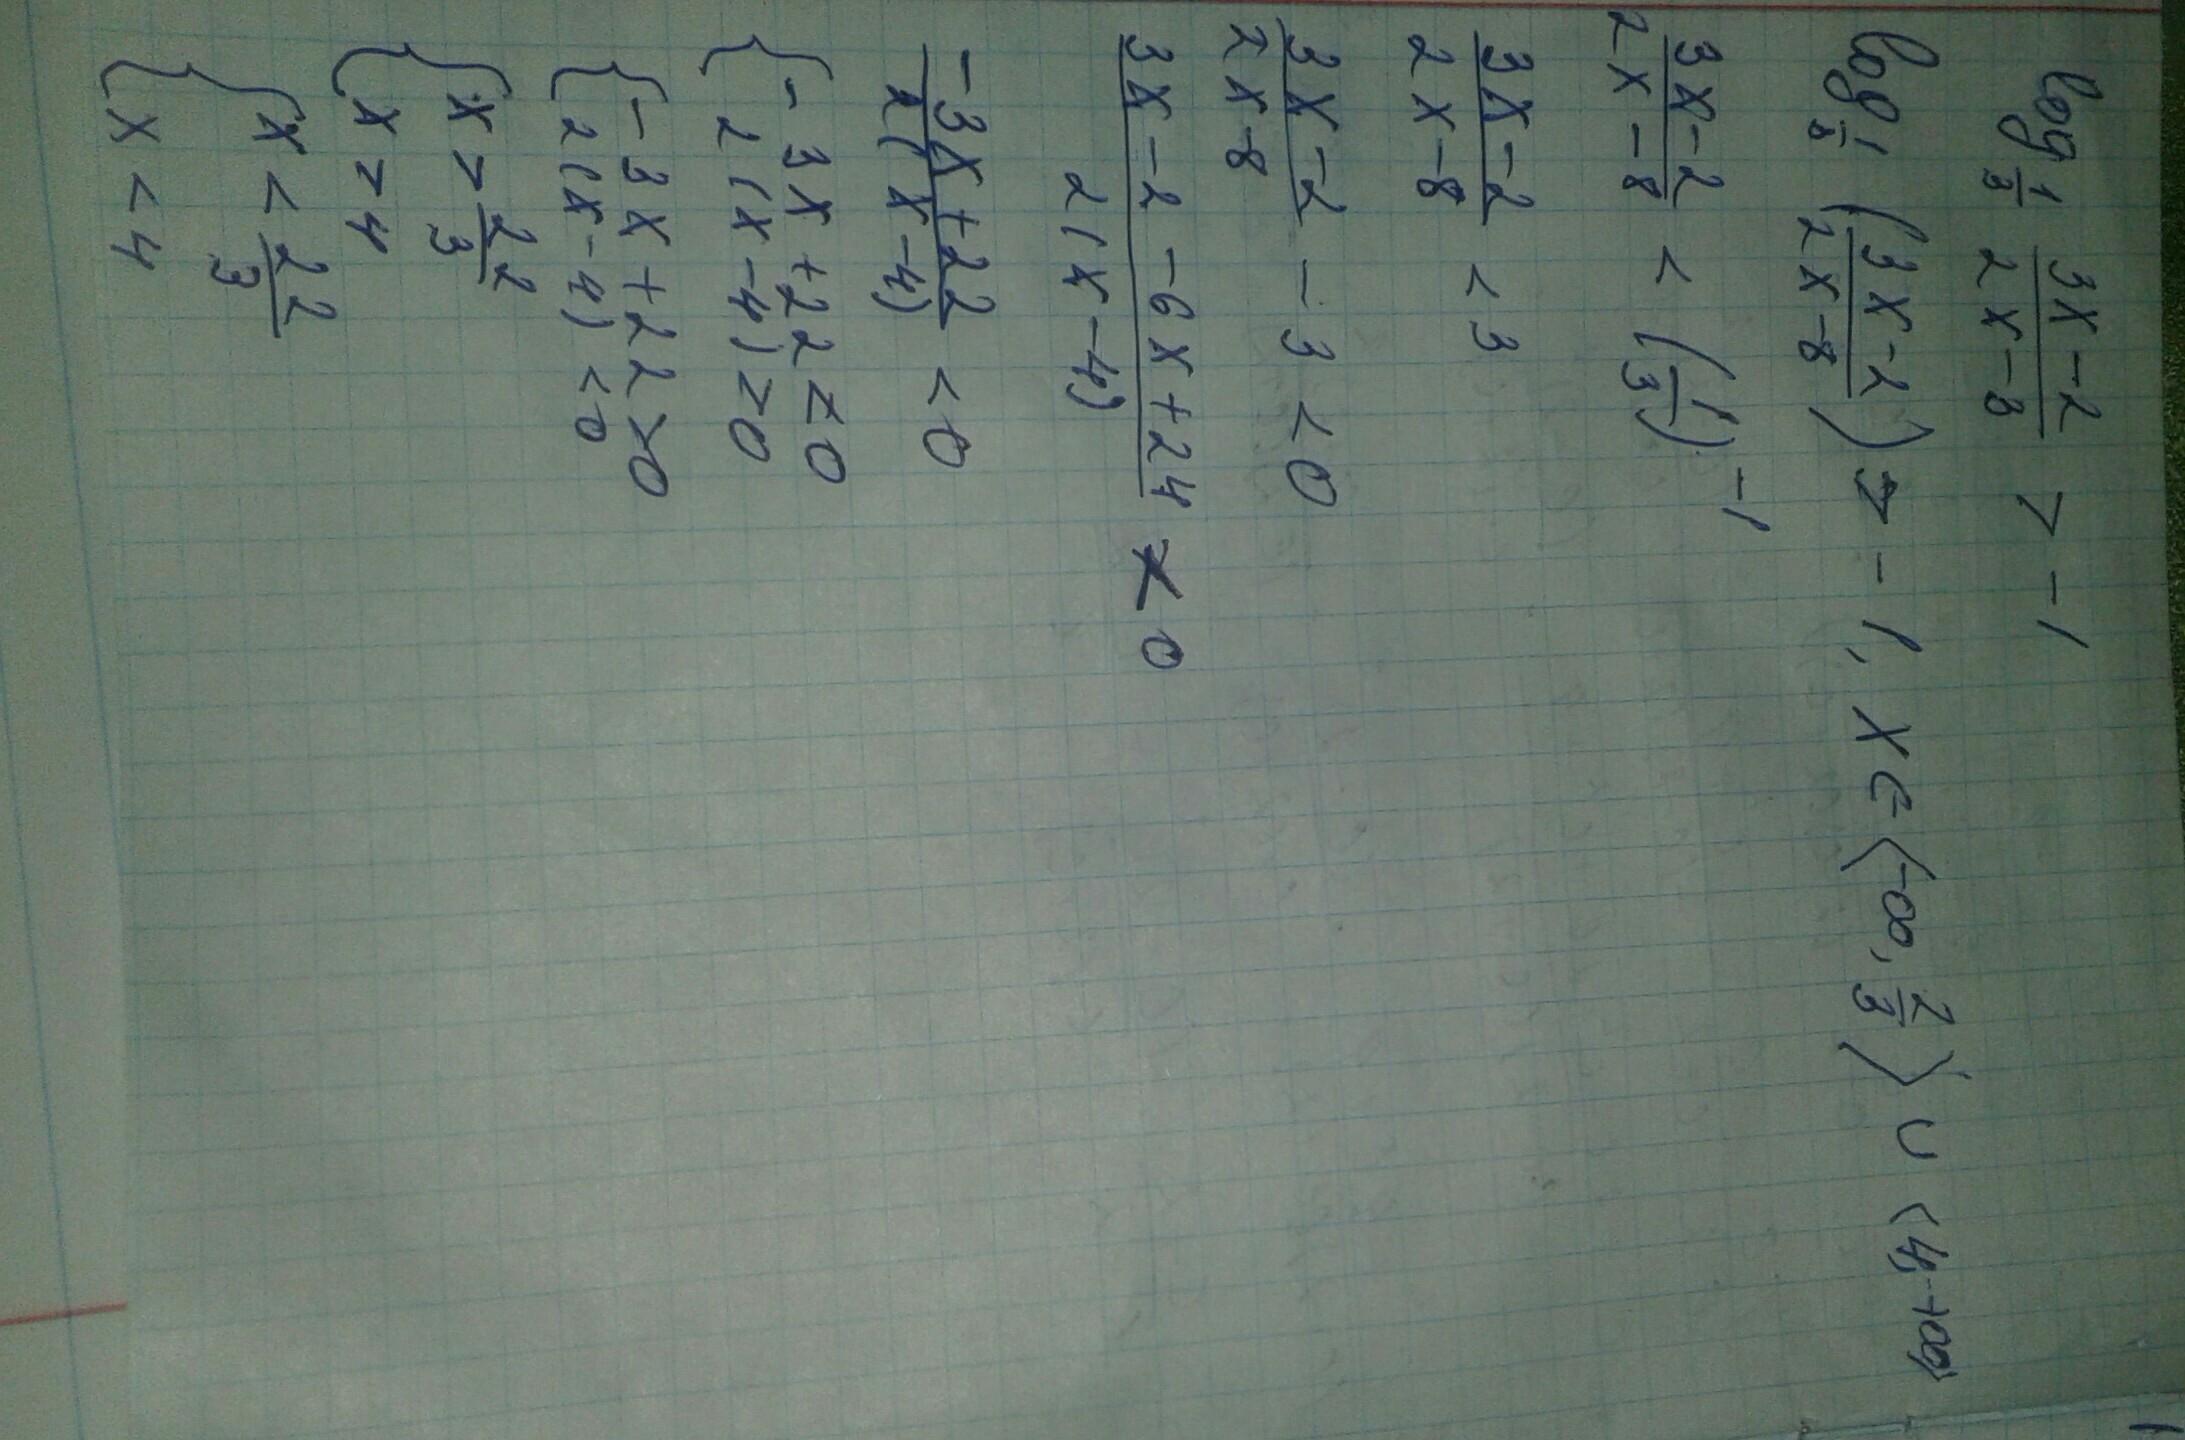 log 1/3 (3x-2)/(2x-8) > -1
log 1/3 ((3x-2)/(2x-8)) > -1, x ∈ <-∞, 2/3> ∪ <4, +∞>
(3x-2)/(2x-8) < (1/3)^-1
(3x-2)/(2x-8) < 3
(3x-2)/(2x-8) - 3 < 0
(3x-2-6x+24)/(2(x-4)) < 0
(-3x+22)/(2(x-4)) < 0
{ { -3x+22 < 0
2(x-4) > 0
{ { -3x+22 > 0
2(x-4) < 0
{ { x > 22/3
x > 4
{ { x < 22/3
x < 4